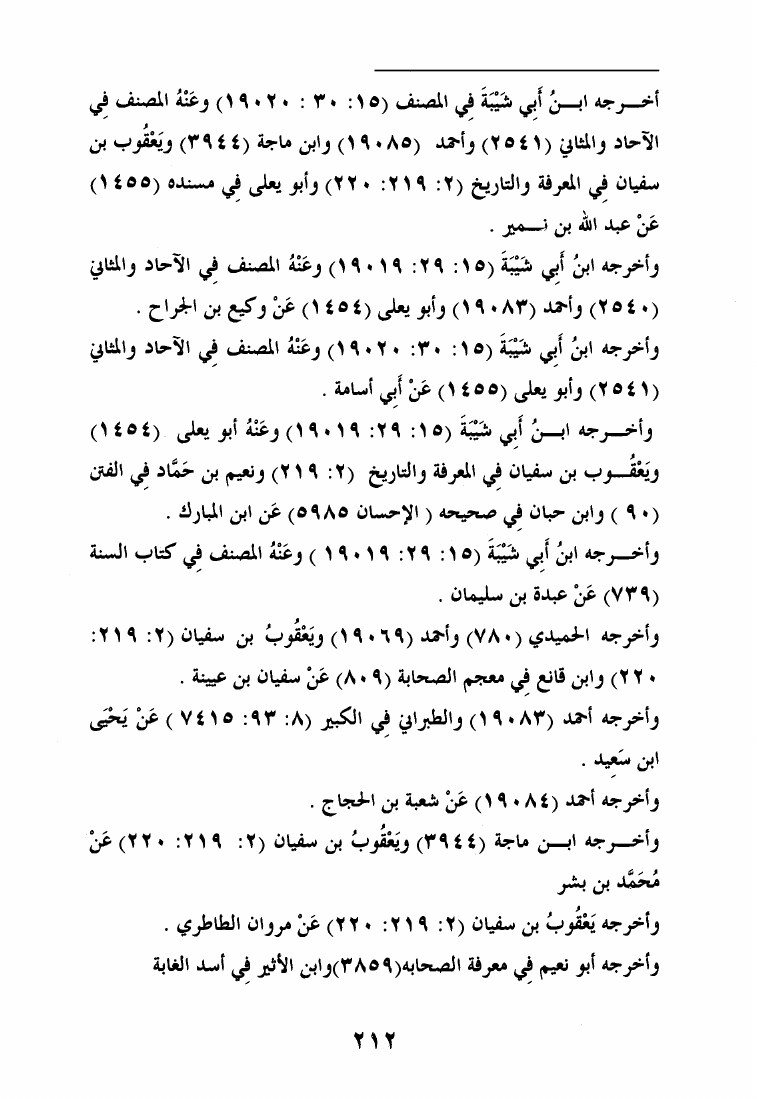 أخـــرجه ابـــنُ أَبِي شَيْبَةَ فِي المصنف (١٥: ٣٠ : ١٩٠٢٠) وعَنْهُ المصنف فِي
الآحاد والمثاني (٢٥٤١) وأحمد (١٩٠٨٥) وابن ماجة (٣٩٤٤) ويَعْقُوب بن
سفيان فِي المعرفة والتاريخ (٢: ٢١٩: ٢٢٠) وأبو يعلى فِي مسنده (١٤٥٥)
عَنْ عبد الله بن نـــمير .
وأخرجه ابنُ أَبِي شَيْبَةَ (١٥: ٢٩: ١٩٠١٩) وعَنْهُ المصنف فِي الآحاد والمثاني
(٢٥٤٠) وأحمد (١٩٠٨٣) وأبو يعلى (١٤٥٤) عَنْ وكيع بن الجراح .
وأخرجه ابنُ أَبِي شَيْبَةَ (١٥: ٣٠: ١٩٠٢٠) وعَنْهُ المصنف فِي الآحاد والمثاني
(٢٥٤١) وأبو يعلى (١٤٥٥) عَنْ أَبِي أسامة .
وأخـــرجه ابـــنُ أَبِي شَيْبَةَ (١٥: ٢٩: ١٩٠١٩) وعَنْهُ أبو يعلى (١٤٥٤)
ويَعْقُـــوب بن سفيان فِي المعرفة والتاريخ (٢: ٢١٩) ونعيم بن حَمَّاد فِي الفتن
(٩٠ ) وابن حبان فِي صحيحه ( الإحسان ٥٩٨٥) عَن ابن المبارك .
وأخـــرجه ابنُ أَبِي شَيْبَةَ (١٥: ٢٩: ١٩٠١٩ ) وعَنْهُ المصنف فِي كتاب السنة
(٧٣٩) عَنْ عبدة بن سليمان .
وأخرجه الحميدي (٧٨٠) وأحمد (١٩٠٦٩) ويَعْقُوبُ بن سفيان (٢: ٢١٩:
٢٢٠) وابن قانع فِي معجم الصحابة (٨٠٩) عَنْ سفيان بن عيينة .
وأخرجه أحمد (١٩٠٨٣) والطبراني فِي الكبير (٨: ٩٣: ٧٤١٥ ) عَنْ يَحْيَى
ابن سَعِيد .
وأخرجه أحمد (١٩٠٨٤) عَنْ شعبة بن الحجاج .
وأخـــرجه ابـــن ماجة (٣٩٤٤) ويَعْقُوبُ بن سفيان (٢: ٢١٩: ٢٢٠) عَنْ
مُحَمَّد بن بشر
وأخرجه يَعْقُوبُ بن سفيان (٢: ٢١٩: ٢٢٠) عَنْ مروان الطاطري .
وأخرجه أبو نعيم فِي معرفة الصحابه(٣٨٥٩)وابن الأثير فِي أسد الغابة
٢١٢